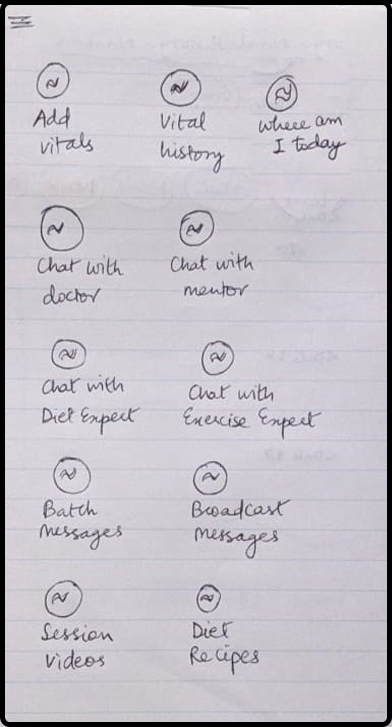 Add
vitals
Vital
history
Where am
I today
Chat with
doctor
Chat with
mentor
Chat with
Diet Expert
Chat with
Exercise Expert
Batch
Messages
Broadcast
Messages
Session
Videos
Diet
Recipes